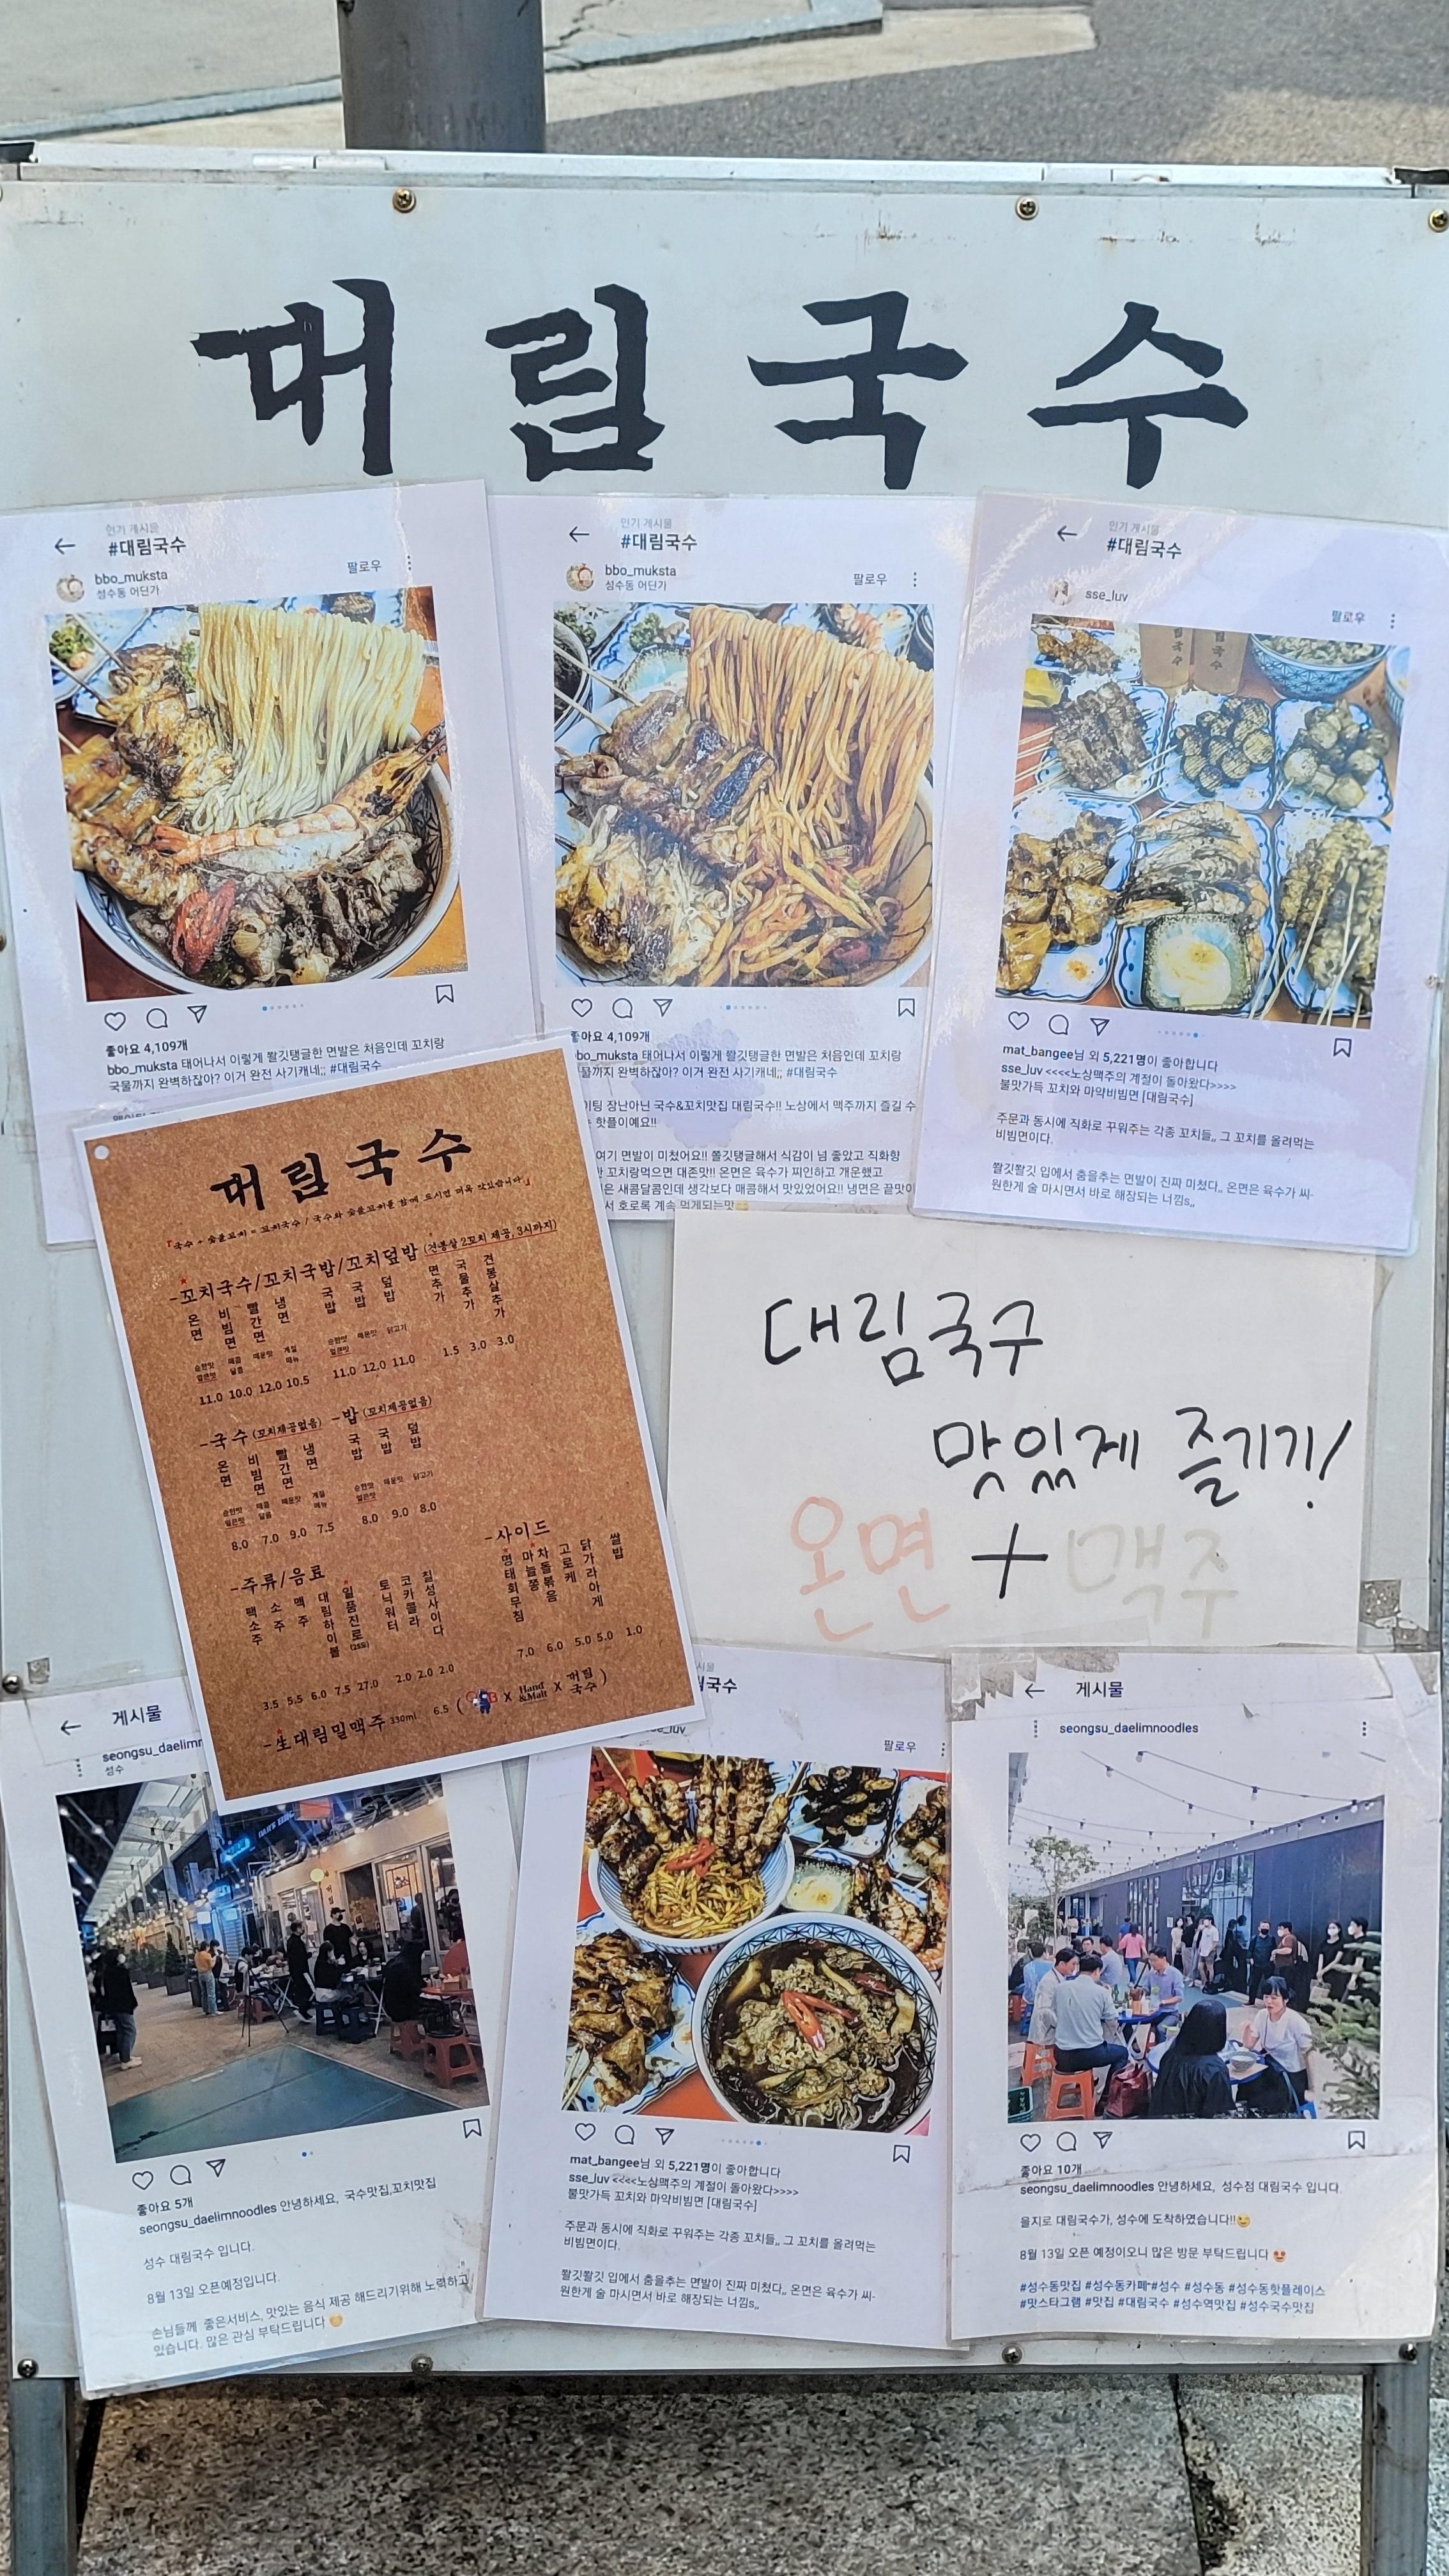 대림국수
인기 게시물
#대림국수
bbo_muksta
성수동 어딘가
팔로우
좋아요 4,109개
bbo_muksta 태어나서 이렇게 쫠깃탱글한 면발은 처음인데 꼬치랑
국물까지 완벽하잖아? 이거 완전 사기캐네;; #대림국수
인기 게시물
#대림국수
bbo_muksta
성수동 어딘가
팔로우
좋아요 4,109개
bbo_muksta 태어나서 이렇게 쫠깃탱글한 면발은 처음인데 꼬치랑
국물까지 완벽하잖아? 이거 완전 사기캐네;; #대림국수
이팅 장난아닌 국수&꼬치맛집 대림국수!! 노상에서 맥주까지 즐길 수
핫플이예요!!
여기 면발이 미쳤어요!! 쫄깃탱글해서 식감이 넘 좋았고 직화향
꼬치랑먹으면 대존맛!! 온면은 육수가 찌인하고 개운했고
은 새콤달콤인데 생각보다 매콤해서 맛있었어요!! 냉면은 끝맛이
서 호로록 계속 먹게되는맛
인기 게시물
#대림국수
sse_luv
팔로우
mat_bangee님 외 5,221명이 좋아합니다
sse_luv <<<<노상맥주의 계절이 돌아왔다>>>>
불맛가득 꼬치와 마약비빔면 [대림국수]
주문과 동시에 직화로 꾸워주는 각종 꼬치들,, 그 꼬치를 올려먹는
비빔면이다.
쫠깃쫠깃 입에서 춤을추는 면발이 진짜 미쳤다,, 온면은 육수가 씨-
원한게 술 마시면서 바로 해장되는 너낌s,,
대림국수
「국수 + 숯불꼬치 = 꼬치국수 / 국수와 숯불꼬치를 함께 드시면 더욱 맛있습니다.」
-꼬치국수/꼬치국밥/꼬치덮밥 (견봉살 2꼬치 제공, 3시까지)
온면 비빔면 빨간면 냉면 국밥 국밥 덮밥 면추가 국물추가 견봉살추가
순한맛 얼큰맛 매콤달콤 매운맛 계절메뉴 순한맛 얼큰맛 매운맛 닭고기
11.0 10.0 12.0 10.5 11.0 12.0 11.0 1.5 3.0 3.0
-국수 (꼬치제공없음) -밥 (꼬치제공없음)
온면 비빔면 빨간면 냉면 국밥 국밥 덮밥
순한맛 얼큰맛 매콤달콤 매운맛 계절메뉴 순한맛 얼큰맛 매운맛 닭고기
8.0 7.0 9.0 7.5 8.0 9.0 8.0
-사이드
명태회무침 마늘쫑차돌볶음 고로케 닭가라아게 쌀밥
7.0 6.0 5.0 5.0 1.0
-주류/음료
맥소주 소주 맥주 대림하이볼 일품진로(25도) 토닉워터 코카콜라 칠성사이다
3.5 5.5 6.0 7.5 27.0 2.0 2.0 2.0
-生대림밀맥주 330ml 6.5 ( X Hand &Malt X 대림국수 )
대림국수
맛있게 즐기기!
온면 + 맥주
게시물
seongsu_daelimn
성수
좋아요 5개
seongsu_daelimnoodles 안녕하세요, 국수맛집,꼬치맛집
성수 대림국수 입니다.
8월 13일 오픈예정입니다.
손님들께 좋은서비스, 맛있는 음식 제공 해드리기위해 노력하고
있습니다. 많은 관심 부탁드립니다
팔로우
mat_bangee님 외 5,221명이 좋아합니다
sse_luv <<<<노상맥주의 계절이 돌아왔다>>>>
불맛가득 꼬치와 마약비빔면 [대림국수]
주문과 동시에 직화로 꾸워주는 각종 꼬치들,, 그 꼬치를 올려먹는
비빔면이다.
쫠깃쫠깃 입에서 춤을추는 면발이 진짜 미쳤다,, 온면은 육수가 씨-
원한게 술 마시면서 바로 해장되는 너낌s,,
게시물
seongsu_daelimnoodles
좋아요 10개
seongsu_daelimnoodles 안녕하세요, 성수점 대림국수 입니다.
을지로 대림국수가, 성수에 도착하였습니다!!😉
8월 13일 오픈 예정이오니 많은 방문 부탁드립니다 😍
#성수동맛집 #성수동카페 #성수 #성수동 #성수동핫플레이스
#맛스타그램 #맛집 #대림국수 #성수역맛집 #성수국수맛집